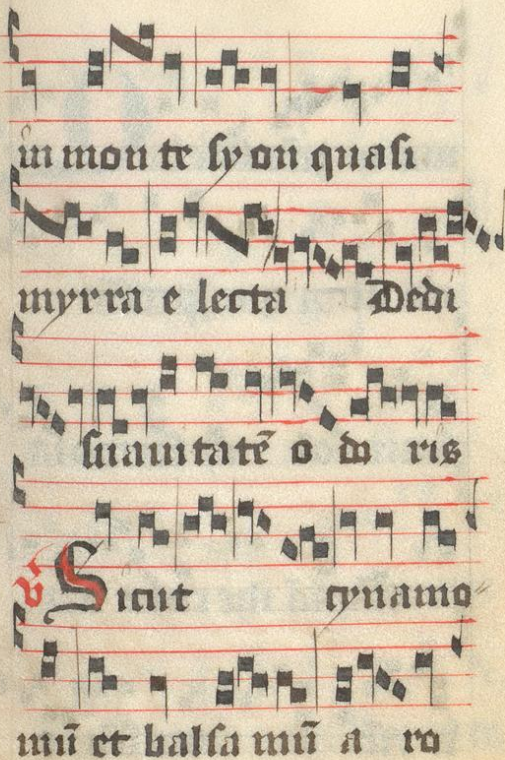 in mon te syon quasi
myrra e lecta Dedi
suauitatē o do ris
℣ Sicut cynamo
mū et balsa mū a ro